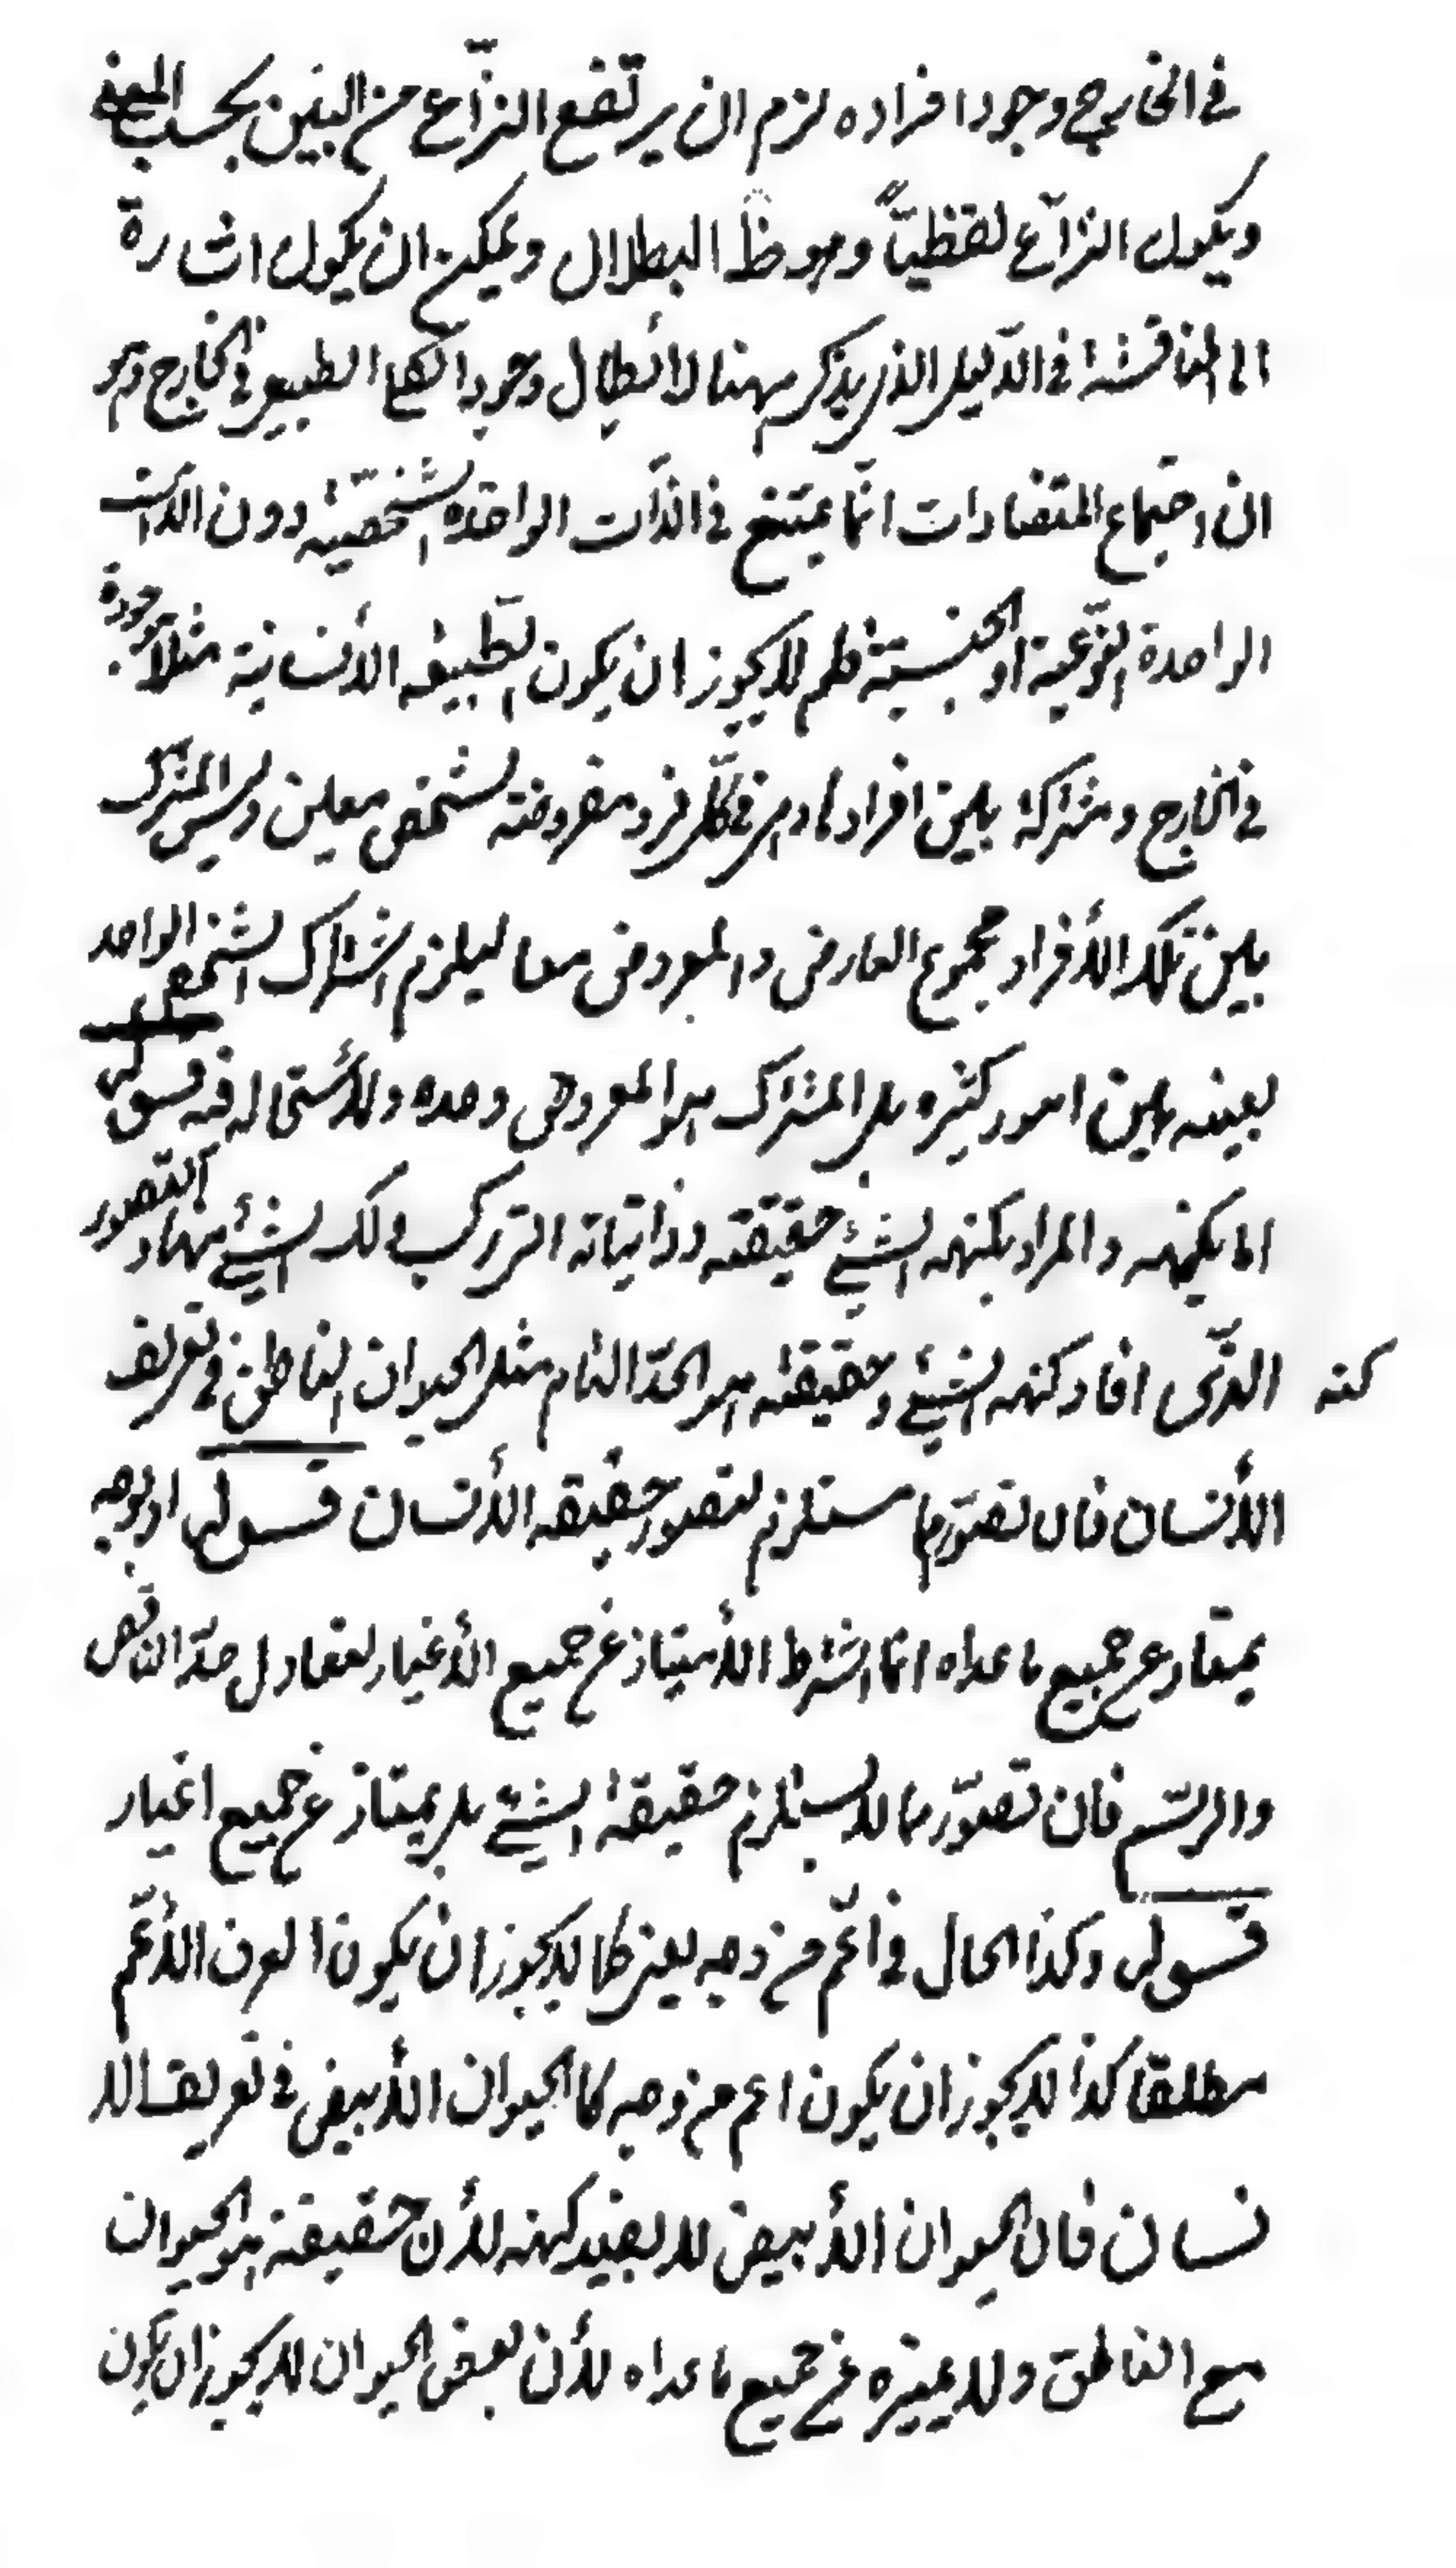 في الخارج وجود افراده لزم ان يرتفع النزّاع من البين بحسب المعنى
ويكون النزاع لفظيّاً وهو ظ البطلان ويمكن ان يكون اشارة
الى المناقشة في الدّليل الذى يذكر ههنا لابطال وجود الكلي الطبيعي في الخارج وهو
ان اجتماع المتضادات انّما يمتنع في الذّات الواحدة الشخصيّة دون الذّات
الواحدة النوّعية او الجنسيّة فلم لا يجوز ان يكون الطّبيعه الأنسانية مثلاً موجودة
في الخارج ومشتركة بين افرادها وهى في كلّ فرد معروضة لشخص معين وليس المشترك
بين تلك الأفراد مجموع العارض والمعروض معا ليلزم اشتراك الشخص الواحد
بعينه بين امور كثيره بل المشترك هو المعروض وحده ولا استحاله فيه قوله
اما بكنهه والمراد بكنهه الشيئ حقيقته وذاتياته التى تركب ذلك الشيئ منها والتصور
كنه الذّى افاد كنهه الشيئ وحقيقته هو الحدّ التام مثل الحيوان الناطق في تعريف
الأنسان فان تصوّرها مستلزم لتصور حقيقه الأنسان قوله او بوجه
يمتاز عن جميع ما عداه انما اشترط الأمتياز عن جميع الأغيار لتعادل حدّ الناقص
والرسّم فان تصوّرها لا يستلزم حقيقة الشيئ بل يمتاز عن جميع اغيار
قوله وكذا الحال في اعّم من وجه يعنى كما لا يجوز ان يكون المعرف الأعّم
مطلقا كذا لا يجوز ان يكون اعم من وجه كا الحيوان الأبيض في تعريف الا
نسان فان الحيوان الأبيض لا يفيد كنهه لأن حقيقة هو الحيوان
مع الناطق ولا يميزه عن جميع ما عداه لأن بعض الحيوان لا يجوز ان يكون